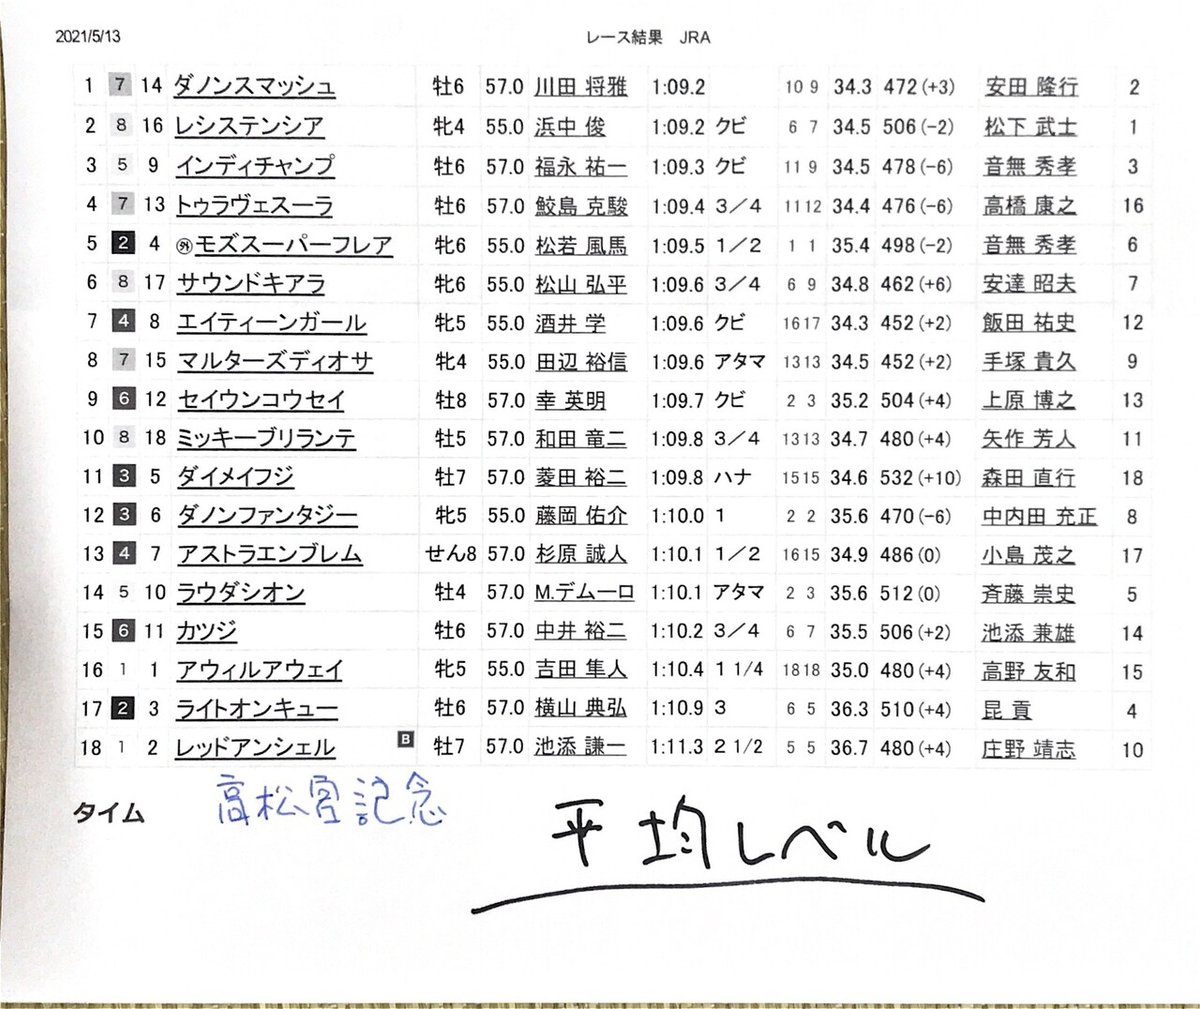 2021/5/13 レース結果 JRA
1 7 14 ダノンスマッシュ 牡6 57.0 川田 将雅 1:09.2 10 9 34.3 472(+3) 安田 隆行 2
2 8 16 レシステンシア 牝4 55.0 浜中 俊 1:09.2 クビ 6 7 34.5 506(-2) 松下 武士 1
3 5 9 インディチャンプ 牡6 57.0 福永 祐一 1:09.3 クビ 11 9 34.5 478(-6) 音無 秀孝 3
4 7 13 トゥラヴェスーラ 牡6 57.0 鮫島 克駿 1:09.4 3/4 11 12 34.4 476(-6) 高橋 康之 16
5 2 4 ㊕モズスーパーフレア 牝6 55.0 松若 風馬 1:09.5 1/2 1 1 35.4 498(-2) 音無 秀孝 6
6 8 17 サウンドキアラ 牝6 55.0 松山 弘平 1:09.6 3/4 6 9 34.8 462(+6) 安達 昭夫 7
7 4 8 エイティーンガール 牝5 55.0 酒井 学 1:09.6 クビ 16 17 34.3 452(+2) 飯田 祐史 12
8 7 15 マルターズディオサ 牝4 55.0 田辺 裕信 1:09.6 アタマ 13 13 34.5 452(+2) 手塚 貴久 9
9 6 12 セイウンコウセイ 牡8 57.0 幸 英明 1:09.7 クビ 2 3 35.2 504(+4) 上原 博之 13
10 8 18 ミッキーブリランテ 牡5 57.0 和田 竜二 1:09.8 3/4 13 13 34.7 480(+4) 矢作 芳人 11
11 3 5 ダイメイフジ 牡7 57.0 菱田 裕二 1:09.8 ハナ 15 15 34.6 532(+10) 森田 直行 18
12 3 6 ダノンファンタジー 牝5 55.0 藤岡 佑介 1:10.0 1 2 2 35.6 470(-6) 中内田 充正 8
13 4 7 アストラエンブレム せん8 57.0 杉原 誠人 1:10.1 1/2 16 15 34.9 486(0) 小島 茂之 17
14 5 10 ラウダシオン 牡4 57.0 M.デムーロ 1:10.1 アタマ 2 3 35.6 512(0) 斉藤 崇史 5
15 6 11 カツジ 牡6 57.0 中井 裕二 1:10.2 3/4 6 7 35.5 506(+2) 池添 兼雄 14
16 1 1 アウィルアウェイ 牝5 55.0 吉田 隼人 1:10.4 1 1/4 18 18 35.0 480(+4) 高野 友和 15
17 2 3 ライトオンキュー 牡6 57.0 横山 典弘 1:10.9 3 6 5 36.3 510(+4) 昆 貢 4
18 1 2 レッドアンシェル B 牡7 57.0 池添 謙一 1:11.3 2 1/2 5 5 36.7 480(+4) 庄野 靖志 10
タイム 高松宮記念
平均レベル